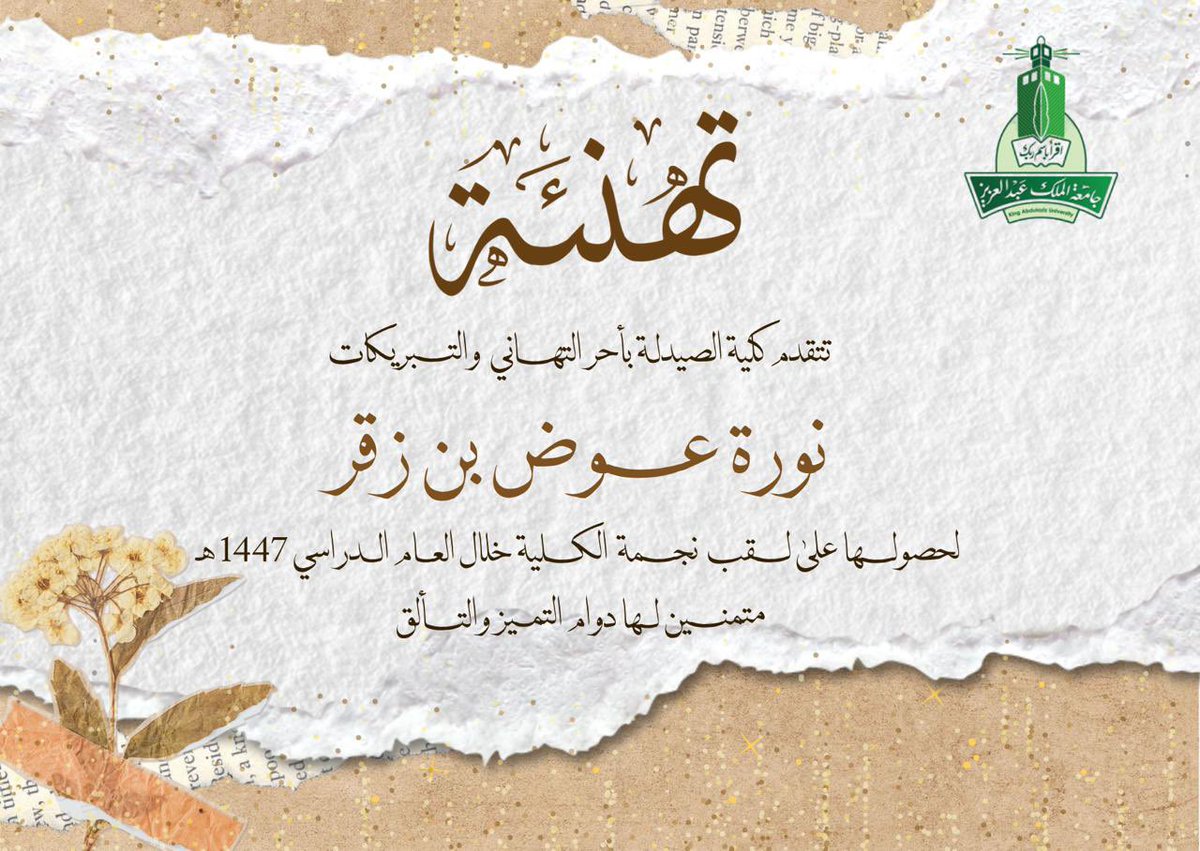 تهنئة
اقرأ باسم ربك
جامعة الملك عبد العزيز
King Abdulaziz University
تتقدم كلية الصيدلة بأحر التهاني والتبريكات
نورة عوض بن زقر
لحصولها على لقب نجمة الكلية خلال العام الدراسي 1447هـ
متمنين لها دوام التميز والتألق